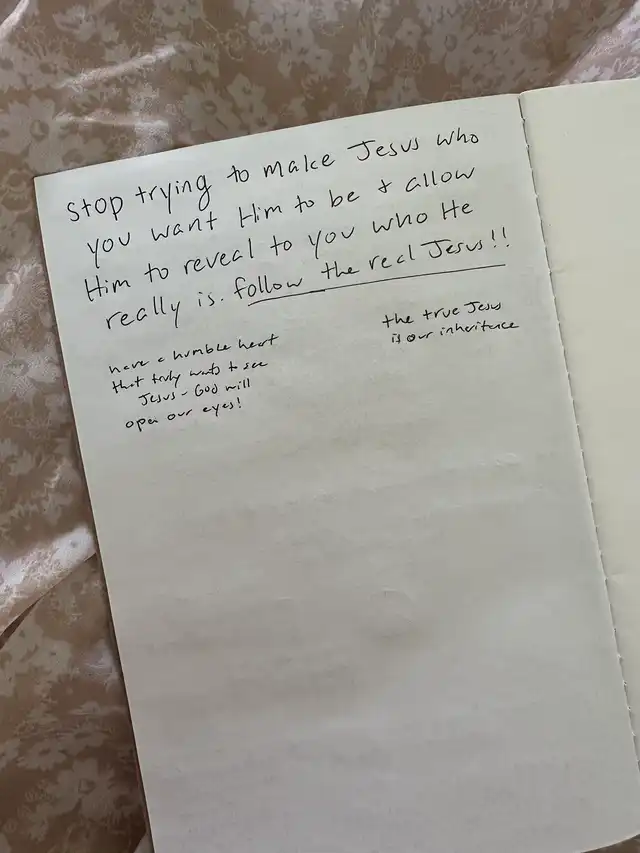 Stop trying to make Jesus who
you want Him to be & allow
Him to reveal to you who He
really is. follow the real Jesus!!
have a humble heart
that truly wants to see
Jesus - God will
open our eyes!
the true Jesus
is our inheritence